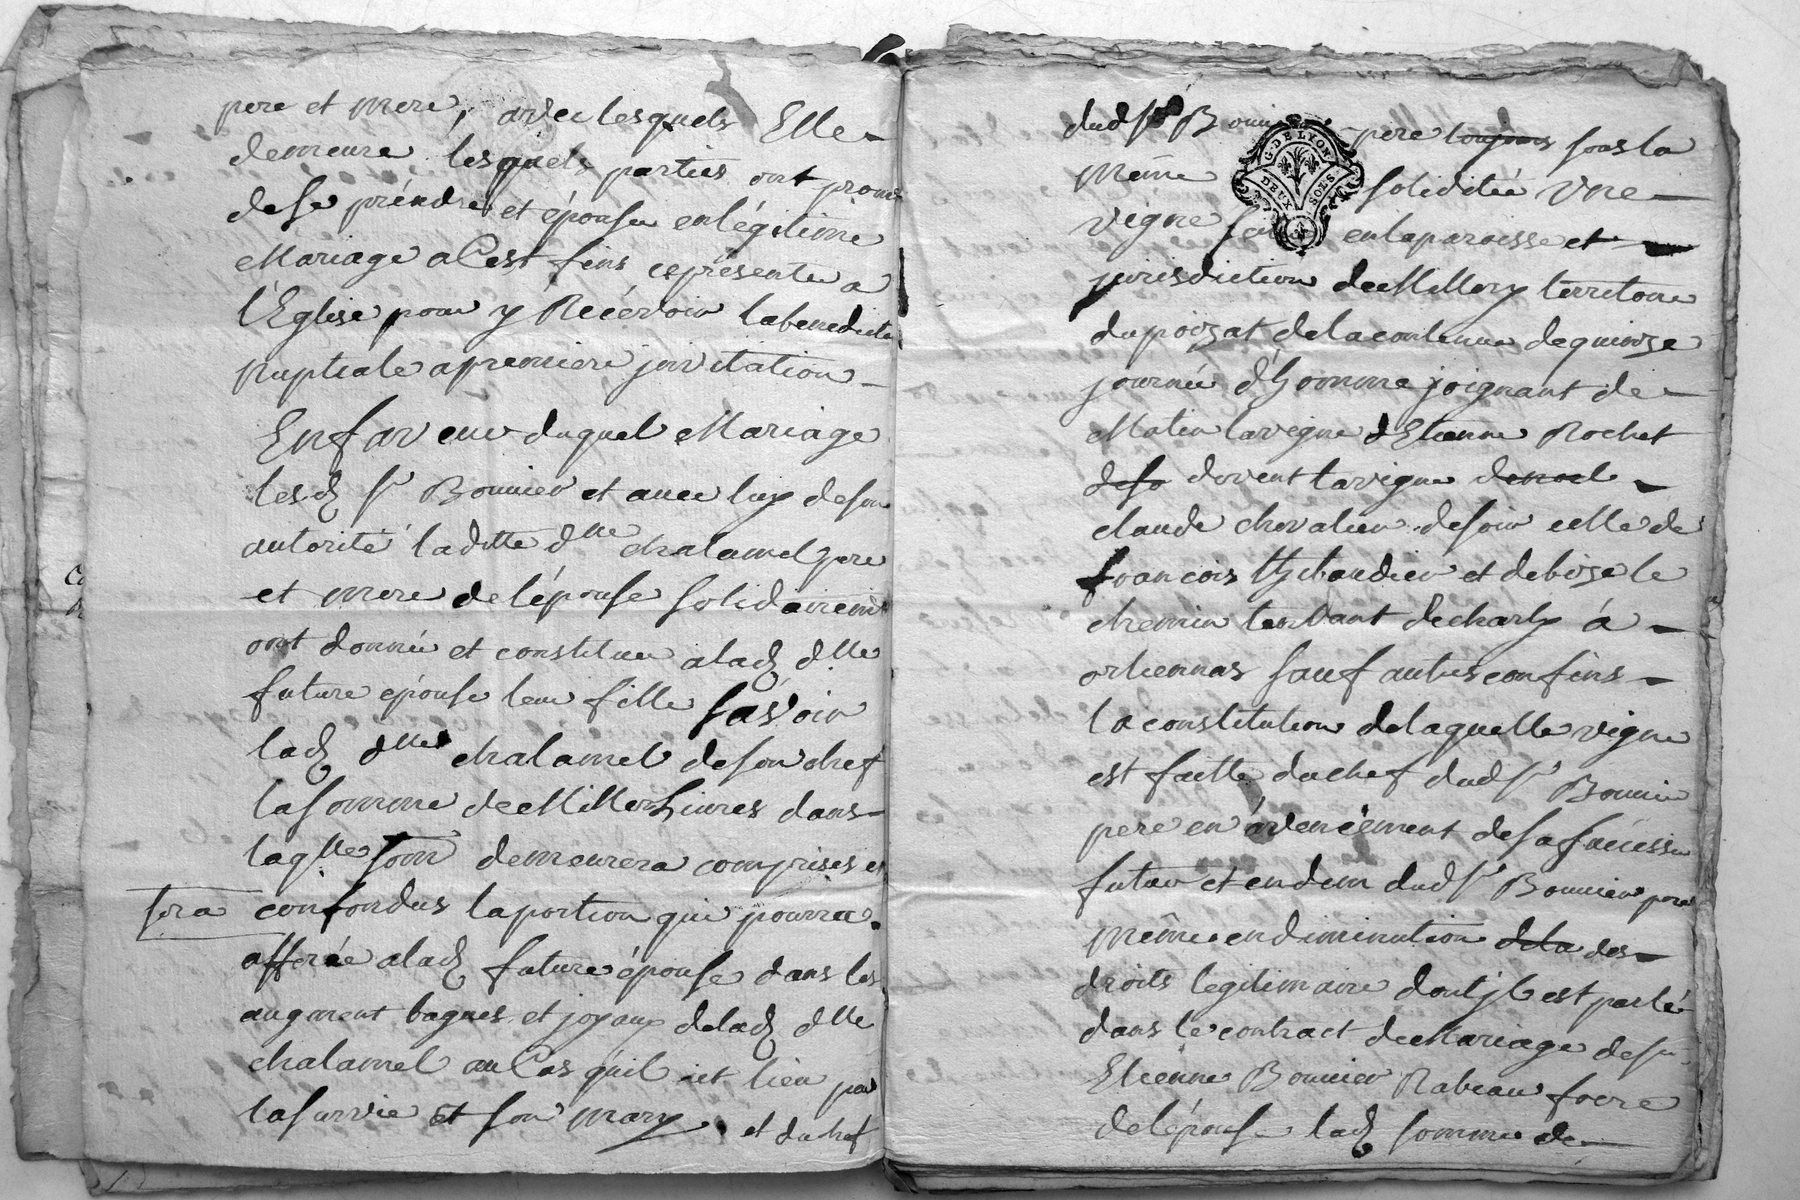 pere et mere, avec lesquels Elle
demeure lesquels parties ont promis
de se prendre et épouser en légitime
Mariage a Cest fins ce présenter a
l'Eglise pour y Recévoir la benedictn
nuptiale a premiere jnvitation
En faveur duquel Mariage
lesd sr Bonnier et avec luy de son
autorité laditte dlle chalamel pere
et mere de l'épouse solidairemt
ont donnée et constituée a lad dlle
future epouse leur fille Sávoir
lad dlle chalamel de son chef
la somme de Mille Livres dans
laqlle som demeurera comprises et
sera confondus la portion qui pourra
afferée a lad future épouse dans les
augment bagues et joyaux de lad dlle
chalamel au Cas qu'il iet lieu par
la survie et son mary et du chef
dud sr Bonnier pere toujours sous la
même solidité vne
vigne en la paroisse et
jurisdiction de Millery territoire
du poizat de la contenue de quinze
journée d'homme joignant de
Matin la vigne d'Etienne Rochet
de so du vent la vigne
claude chevalier de soir celle de
francois thibaudier et de bize le
chemin tendant de charly á
orliennas sauf autres confins
la constitution de laquelle vigne
est faitte du chef dud sr Bonnier
pere en ávencement de sa succession
future et en dim dud sr Bonnier pere
même en diminution de la des
droits legitimaire dont jl est parlé
dans le contract de Mariage de sr
Etienne Bonnier Rabeau frere
de l'épouse lad somme de
G. DE LYON
DEUX SOLS